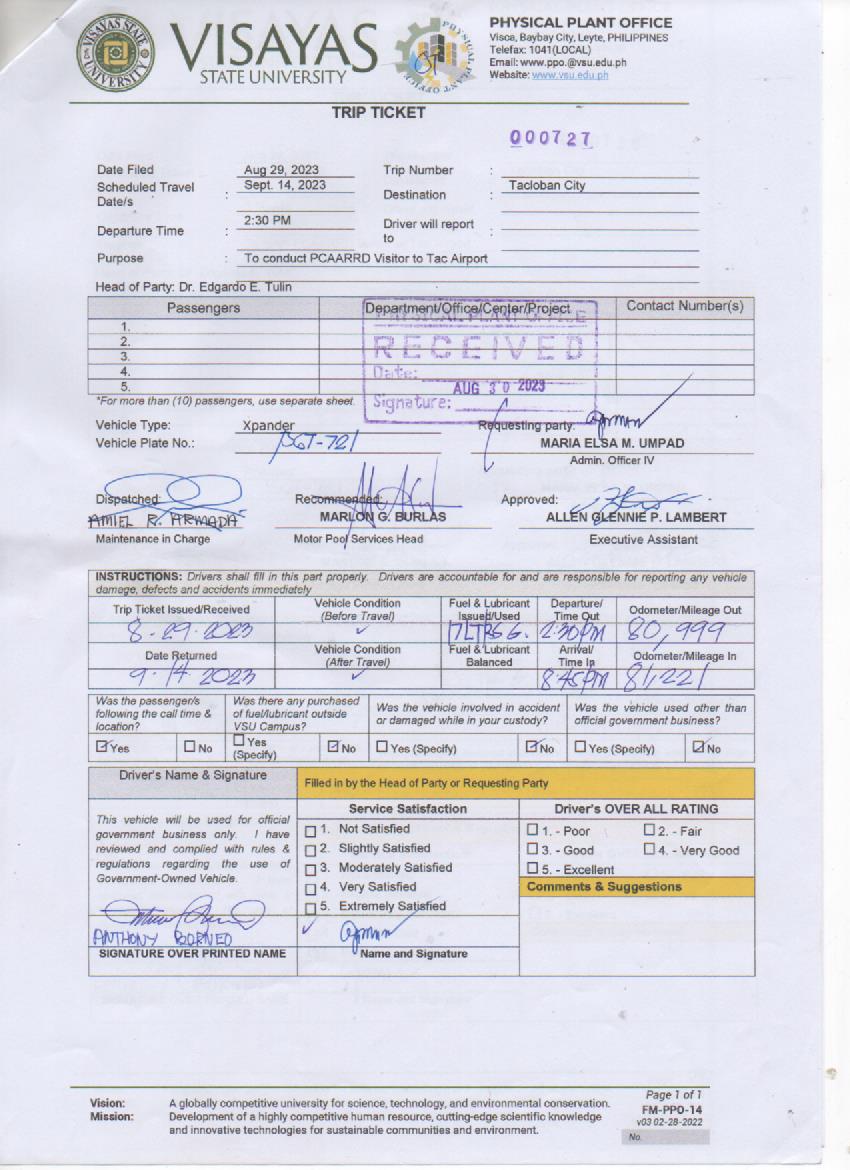 VISAYAS STATE UNIVERSITY
VISAYAS
STATE UNIVERSITY
PHYSICAL PLANT OFFICE
PHYSICAL PLANT OFFICE
Visca, Baybay City, Leyte, PHILIPPINES
Telefax: 1041(LOCAL)
Email: www.ppo.@vsu.edu.ph
Website: www.vsu.edu.ph
TRIP TICKET
000727
Date Filed Aug 29, 2023 Trip Number :
Scheduled Travel Date/s : Sept. 14, 2023 Destination : Tacloban City
Departure Time : 2:30 PM Driver will report to :
Purpose : To conduct PCAARRD Visitor to Tac Airport
Head of Party: Dr. Edgardo E. Tulin
Passengers Department/Office/Center/Project Contact Number(s)
1.
2.
3.
4.
5.
PHYSICAL PLANT OFFICE
RECEIVED
Date: AUG 30 2023
Signature:
*For more than (10) passengers, use separate sheet.
Vehicle Type: Xpander Requesting party:
Vehicle Plate No.: MARIA ELSA M. UMPAD
Admin. Officer IV
Dispatched: Recommended: Approved:
AMIEL R. ARMADA MARLON G. BURLAS ALLEN GLENNIE P. LAMBERT
Maintenance in Charge Motor Pool Services Head Executive Assistant
INSTRUCTIONS: Drivers shall fill in this part properly. Drivers are accountable for and are responsible for reporting any vehicle
damage, defects and accidents immediately
Trip Ticket Issued/Received Vehicle Condition (Before Travel) Fuel & Lubricant Issued/Used Departure/ Time Out Odometer/Mileage Out
8-29-2023 ✓ 17LTRS G. 2:30PM 80,999
Date Returned Vehicle Condition (After Travel) Fuel & Lubricant Balanced Arrival/ Time In Odometer/Mileage In
9-14-2023 ✓ 8:45PM 81,221
Was the passenger/s following the call time & location? Was there any purchased of fuel/lubricant outside VSU Campus? Was the vehicle involved in accident or damaged while in your custody? Was the vehicle used other than official government business?
☑ Yes ☐ No ☐ Yes (Specify) ☑ No ☐ Yes (Specify) ☑ No ☐ Yes (Specify) ☑ No
Driver's Name & Signature Filled in by the Head of Party or Requesting Party
This vehicle will be used for official
government business only. I have
reviewed and complied with rules &
regulations regarding the use of
Government-Owned Vehicle.
ANTHONY BORNEO
SIGNATURE OVER PRINTED NAME
Service Satisfaction
☐ 1. Not Satisfied
☐ 2. Slightly Satisfied
☐ 3. Moderately Satisfied
☐ 4. Very Satisfied
☐ 5. Extremely Satisfied
✓
Name and Signature
Driver's OVER ALL RATING
☐ 1. - Poor ☐ 2. - Fair
☐ 3. - Good ☐ 4. - Very Good
☐ 5. - Excellent
Comments & Suggestions
Vision: A globally competitive university for science, technology, and environmental conservation.
Mission: Development of a highly competitive human resource, cutting-edge scientific knowledge
and innovative technologies for sustainable communities and environment.
Page 1 of 1
FM-PPO-14
v03 02-28-2022
No.